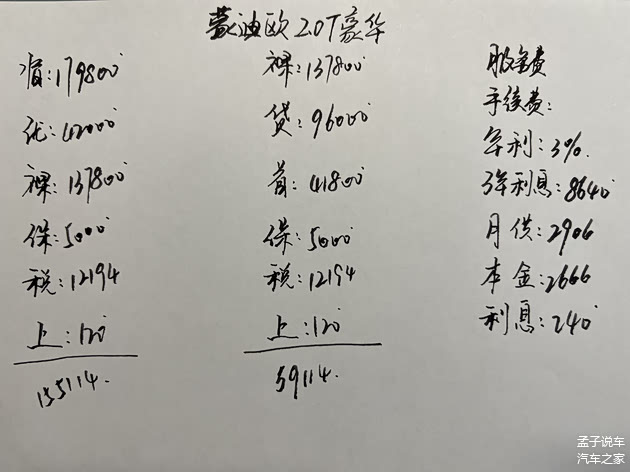 蒙迪欧 2.0T豪华
指:179800
优:42000
裸:137800
保:5000
税:12194
上:120
155114.
裸:137800
贷:96000
首:41800
保:5000
税:12194
上:120
59114.
服务费
手续费:
年利:3%.
3年利息:8640
月供:2906
本金:2666
利息:240
孟子说车
汽车之家